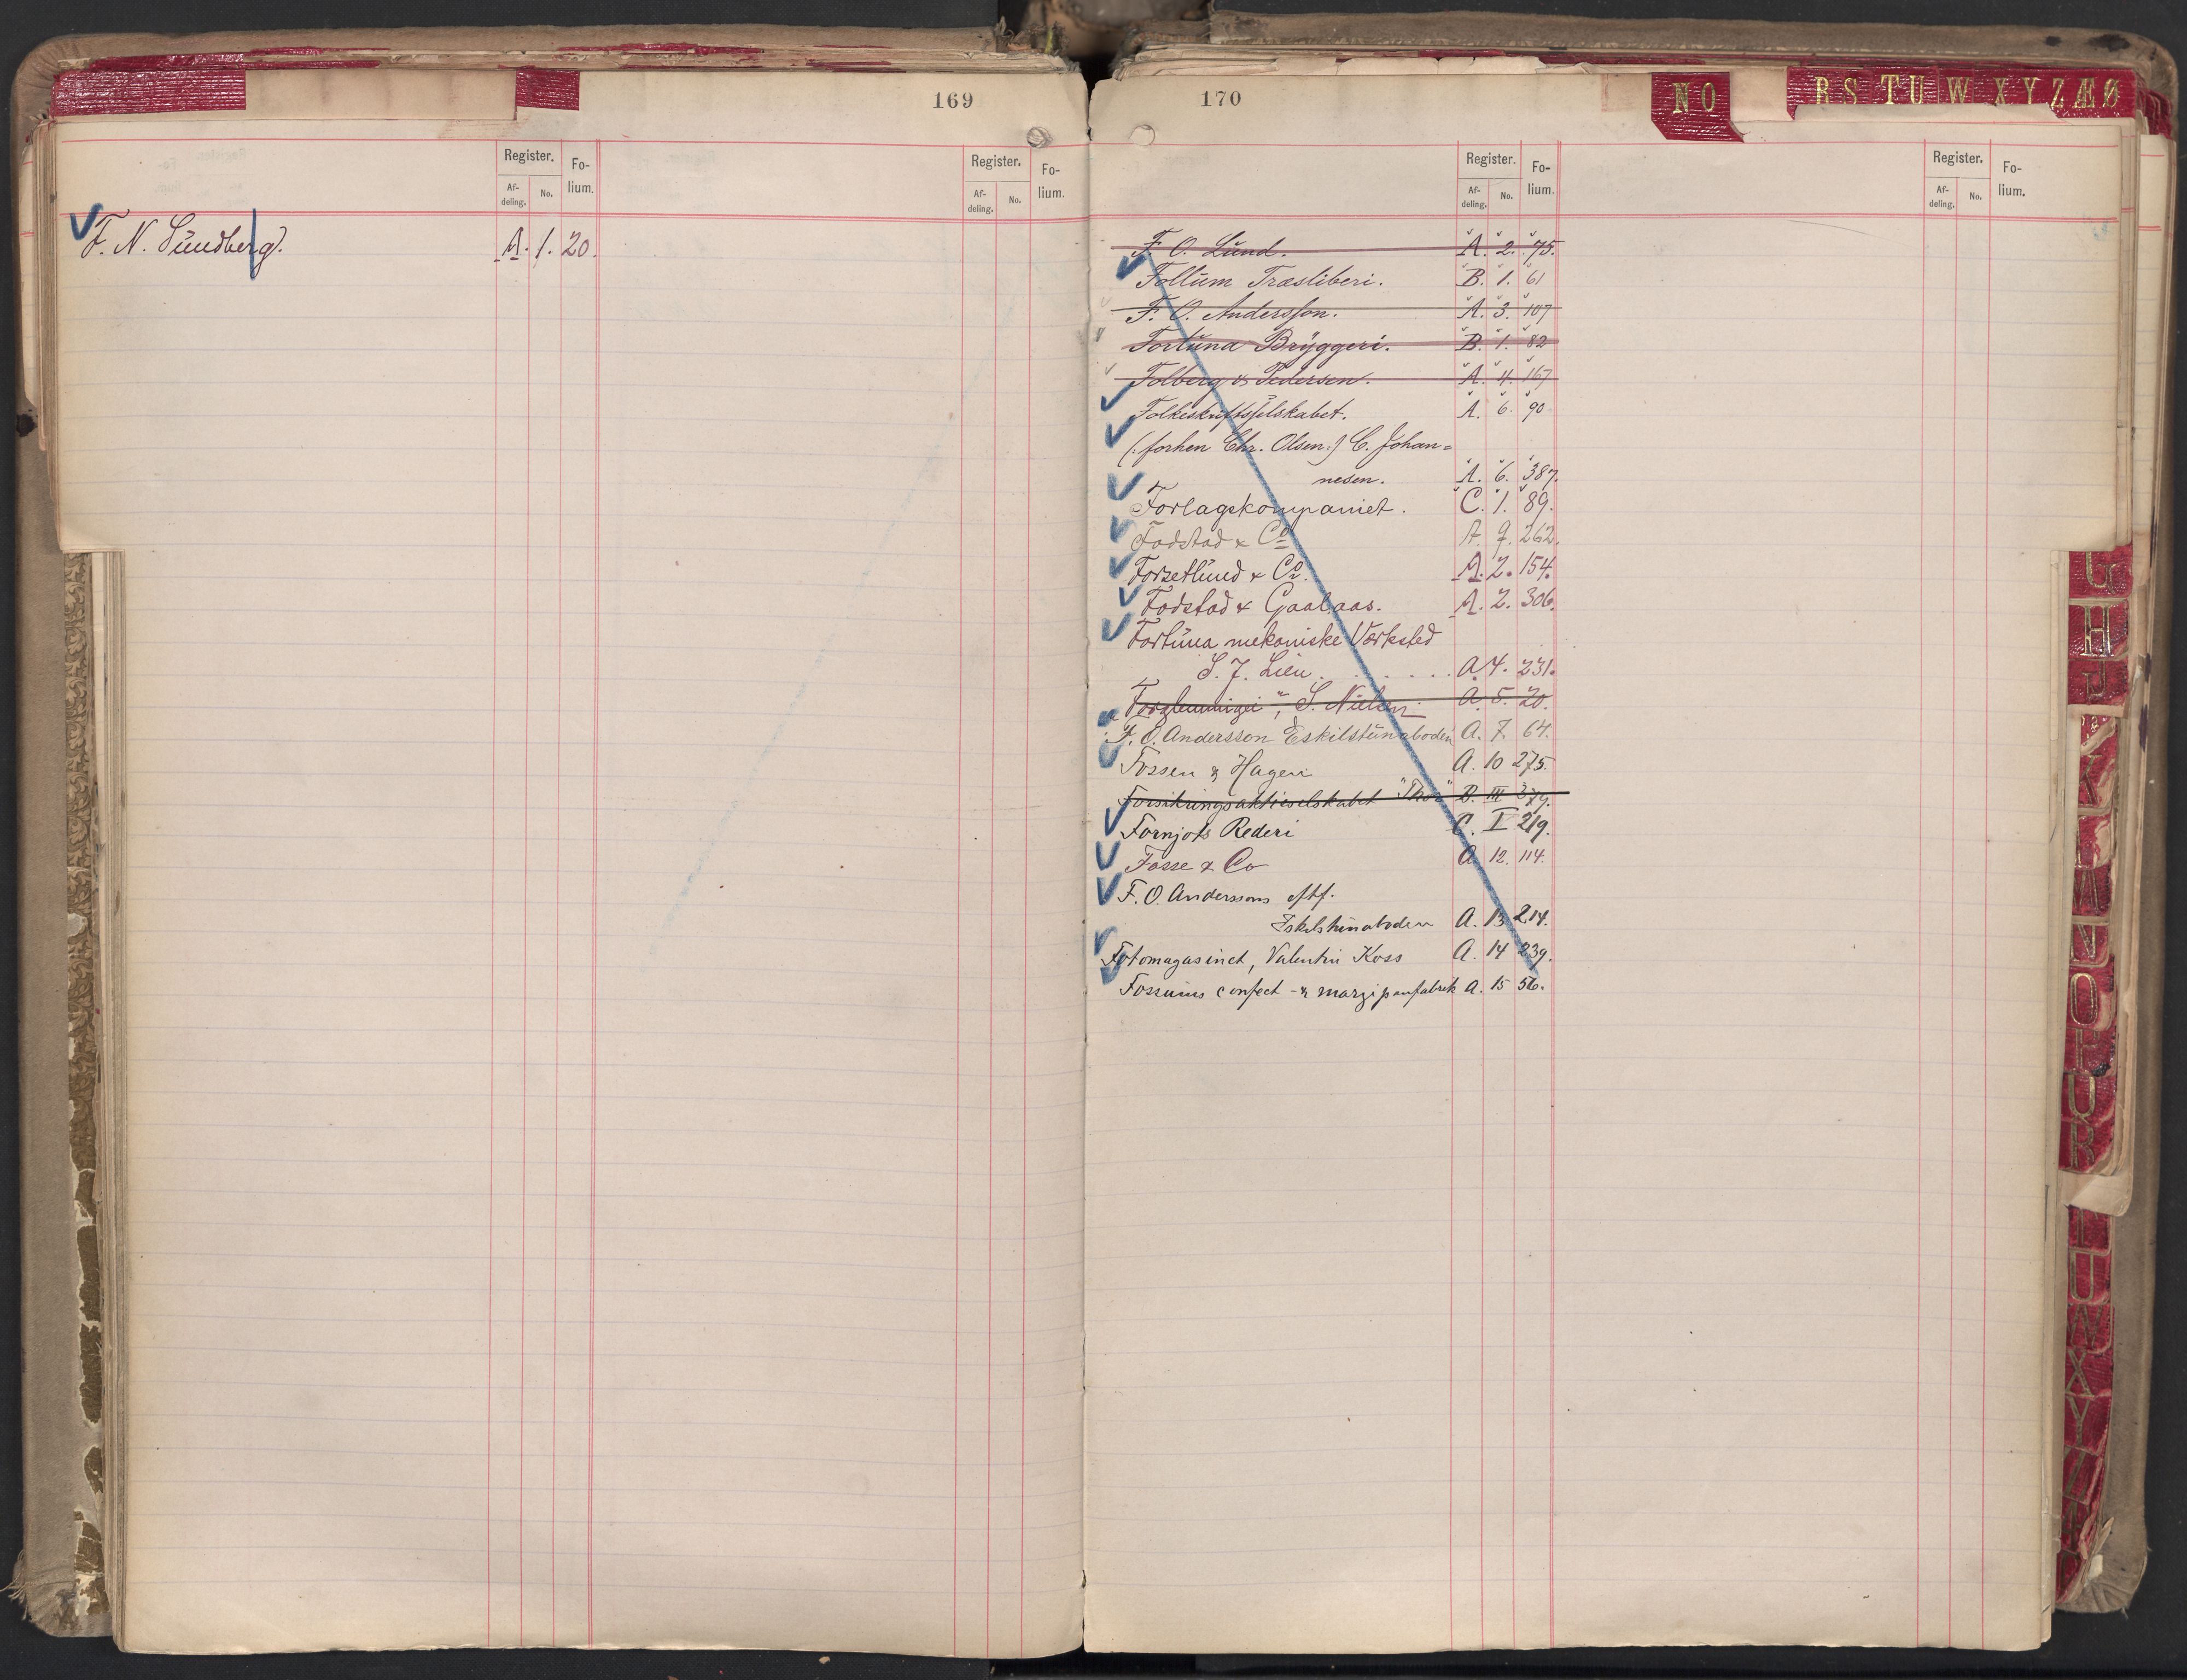 169
Register. Fo-
Af- No. lium.
deling.
Register. Fo-
Af- No. lium.
deling.
F. N. Sündberg. A. 1. 20.
170
N O
R S T U W X Y Z Æ Ø
Register. Fo-
Af- No. lium.
deling.
Register. Fo-
Af- No. lium.
deling.
F. O. Lünd. A. 2. 75.
Follüm Træsliberi. B. 1. 61
F. O. Andersson. A. 3. 107
Fortüna Brÿggeri. B. 1. 82
Folberg & Pedersen. A. 4. 167
Folkeskriftselskabet. A. 6. 90
(: forhen Chr. Olsen :) C. Johan=
nesen. A. 6. 387.
Forlagskompaniet. C. 1. 89.
Fodstad & Co A. 9. 262.
Forsetlünd & Co. A. 2. 154.
Fodstad & Gaalaas. A. 2. 306.
Fortüna mekaniske Værksted
S. J. Lien . . . . . A. 4. 231.
S. Nielsen A. 5. 20.
F. O. Andersson Eskilstünaboden A. 7. 64.
Fossen & Hagen A. 10 275.
Forsikringsaktieselskabet "Thor" B. III 379.
Fornjots Rederi C. I 219.
Fosse & Co A. 12. 114.
F. O. Anderssons eftf.
Eskilstünaboden A. 13 214.
Fotomagasinet, Valentin Koss A. 14 239.
Fossums confect - & marzipanfabrik A. 15 56.
G
H
J
K
L
M
N
O
P
U
R
U
W
X
Y